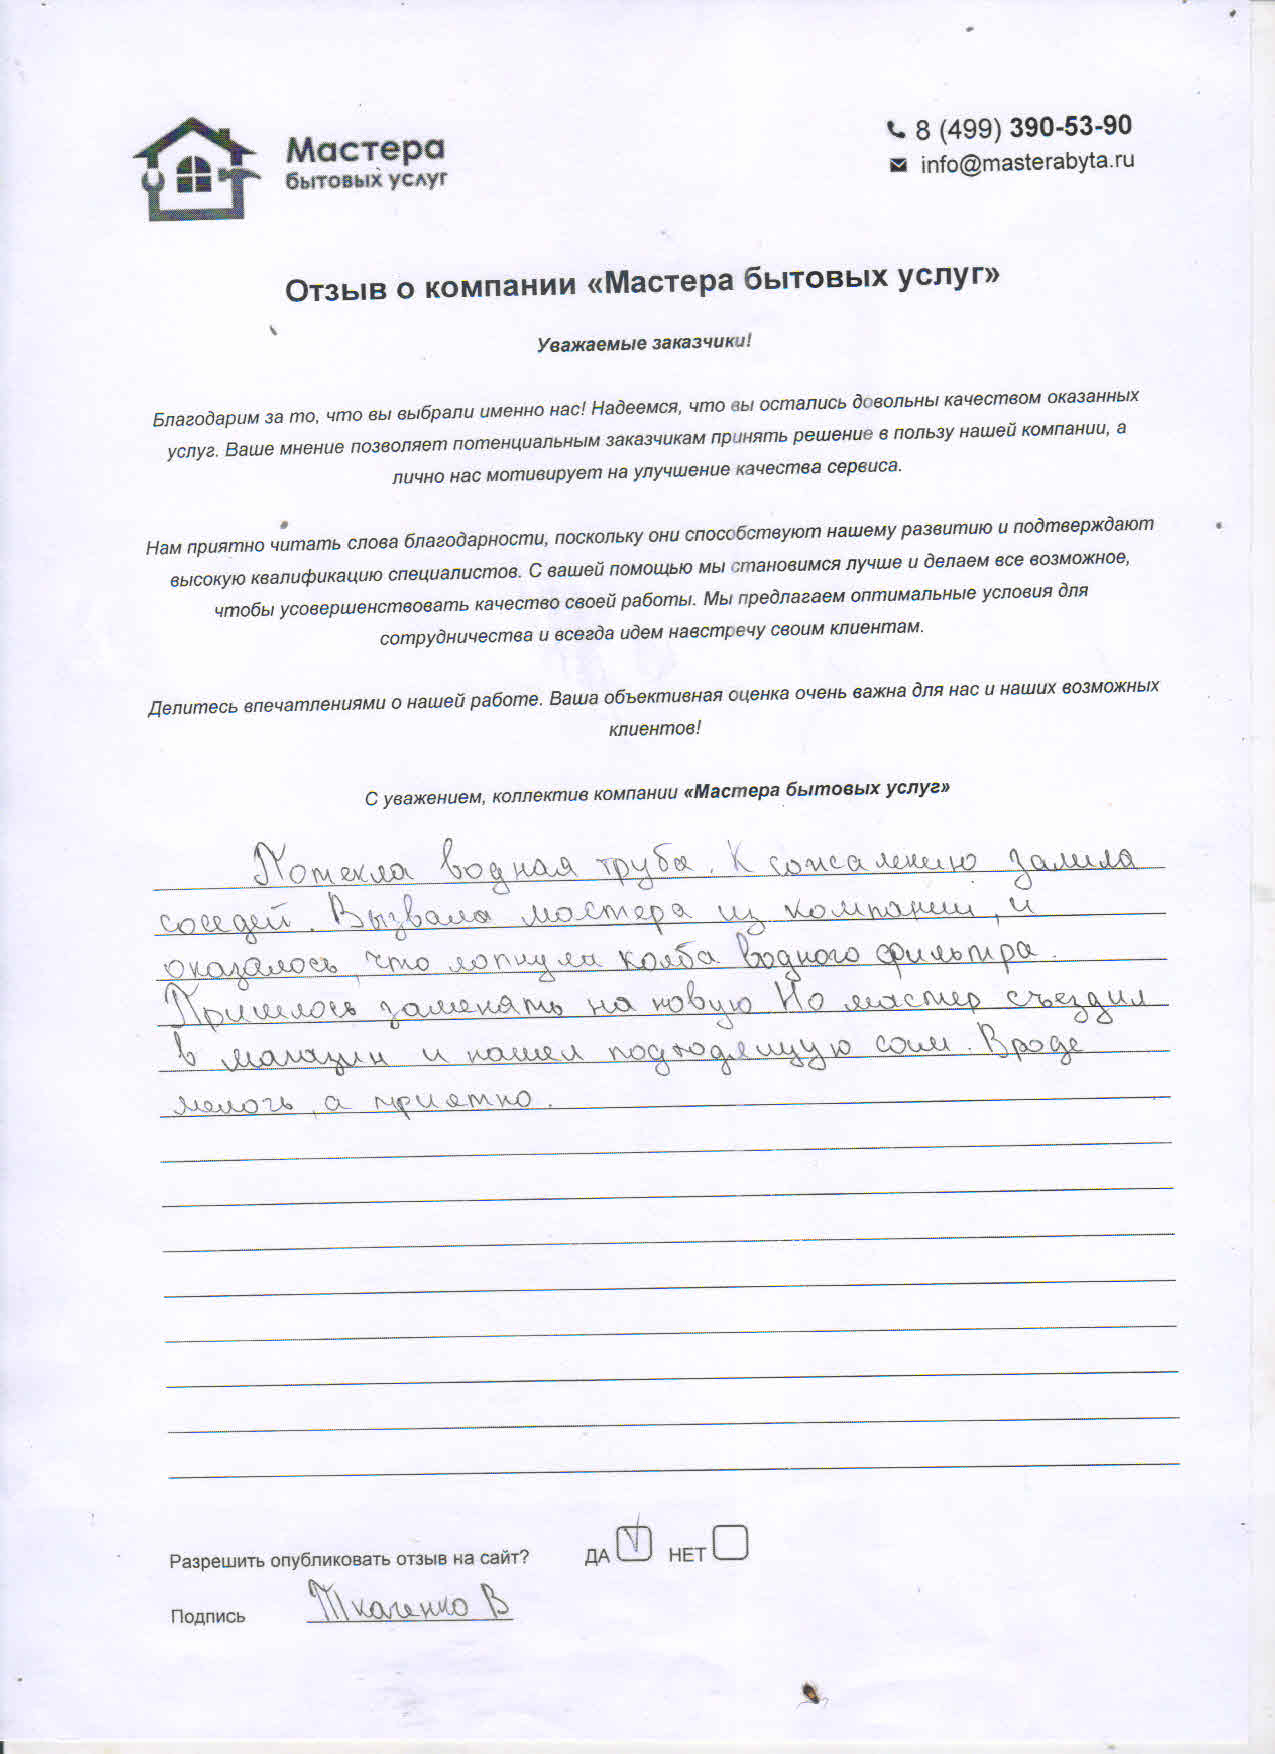 Мастера
бытовых услуг
8 (499) 390-53-90
info@masterabyta.ru
Отзыв о компании «Мастера бытовых услуг»
Уважаемые заказчики!
Благодарим за то, что вы выбрали именно нас! Надеемся, что вы остались довольны качеством оказанных
услуг. Ваше мнение позволяет потенциальным заказчикам принять решение в пользу нашей компании, а
лично нас мотивирует на улучшение качества сервиса.
Нам приятно читать слова благодарности, поскольку они способствуют нашему развитию и подтверждают
высокую квалификацию специалистов. С вашей помощью мы становимся лучше и делаем все возможное,
чтобы усовершенствовать качество своей работы. Мы предлагаем оптимальные условия для
сотрудничества и всегда идем навстречу своим клиентам.
Делитесь впечатлениями о нашей работе. Ваша объективная оценка очень важна для нас и наших возможных
клиентов!
С уважением, коллектив компании «Мастера бытовых услуг»
Потекла водная труба. К сожалению залила
соседей. Вызвала мастера из компании, и
оказалось, что лопнула колба водного фильтра.
Пришлось заменять на новую Но мастер съездил
в магазин и нашел подходящую сам. Вроде
мелочь, а приятно.
Разрешить опубликовать отзыв на сайт? ДА НЕТ
Подпись Ткаченко В